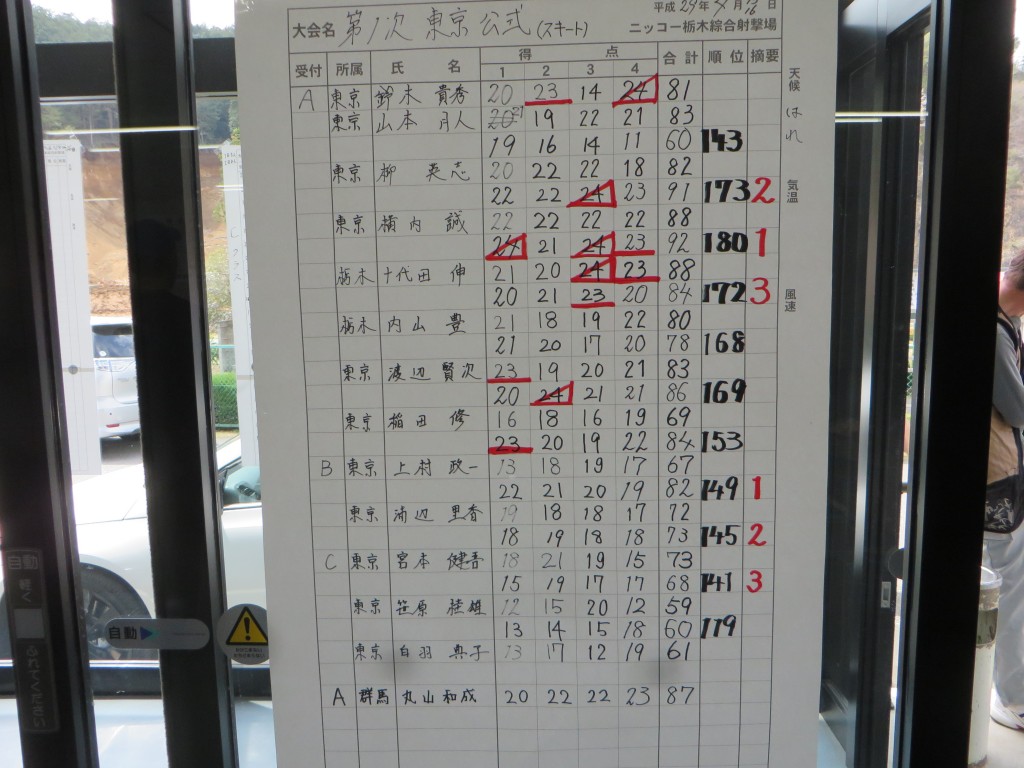 平成 29年 4月 16日
大会名 第1次 東京公式 (スキート) ニッコー栃木綜合射撃場
受付 所属 氏 名 得 点 合計 順位 摘要
1 2 3 4
A 東京 鈴木 貴秀 20 23 14 24 81
東京 山本 月人 19 22 21 83
19 16 14 11 60 143
東京 柳 英志 20 22 22 18 82
22 22 24 23 91 173 2
東京 横内 誠 22 22 22 22 88
24 21 24 23 92 180 1
栃木 十代田 伸 21 20 24 23 88
20 21 23 20 84 172 3
栃木 内山 豊 21 18 19 22 80
21 20 17 20 78 168
東京 渡辺 賢次 23 19 20 21 83
20 24 21 21 86 169
東京 稲田 修 16 18 16 19 69
23 20 19 22 84 153
B 東京 上村 政一 13 18 19 17 67
22 21 20 19 82 149 1
東京 渡辺 里香 19 18 18 17 72
18 19 18 18 73 145 2
C 東京 宮本 健吾 18 21 19 15 73
15 19 17 17 68 141 3
東京 笹原 桂雄 12 15 20 12 59
13 14 15 18 60 119
東京 白羽 典子 13 17 12 19 61
A 群馬 丸山 和成 20 22 22 23 87
天候 はれ
気温
風速
自動
自動
軽く
ふれてください